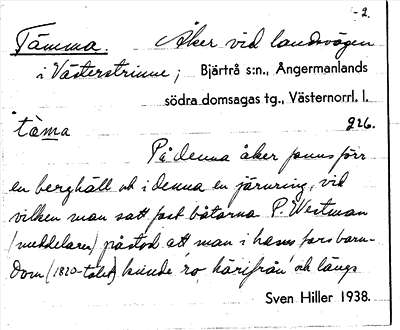 -2.
Tämma. Åker vid landsvägen
i Västerstrinne; Bjärtrå s:n., Ångermanlands
södra domsagas tg., Västernorrl. l.
tàma 926.
På denna åker fanns förr
en berghäll och i denna en järnring, vid
vilken man satt fast båtarna. P. Westman
(meddelaren) påstod att man i hans fars barn-
dom (1820-talet) kunde ro härifrån och längs
Sven Hiller 1938.